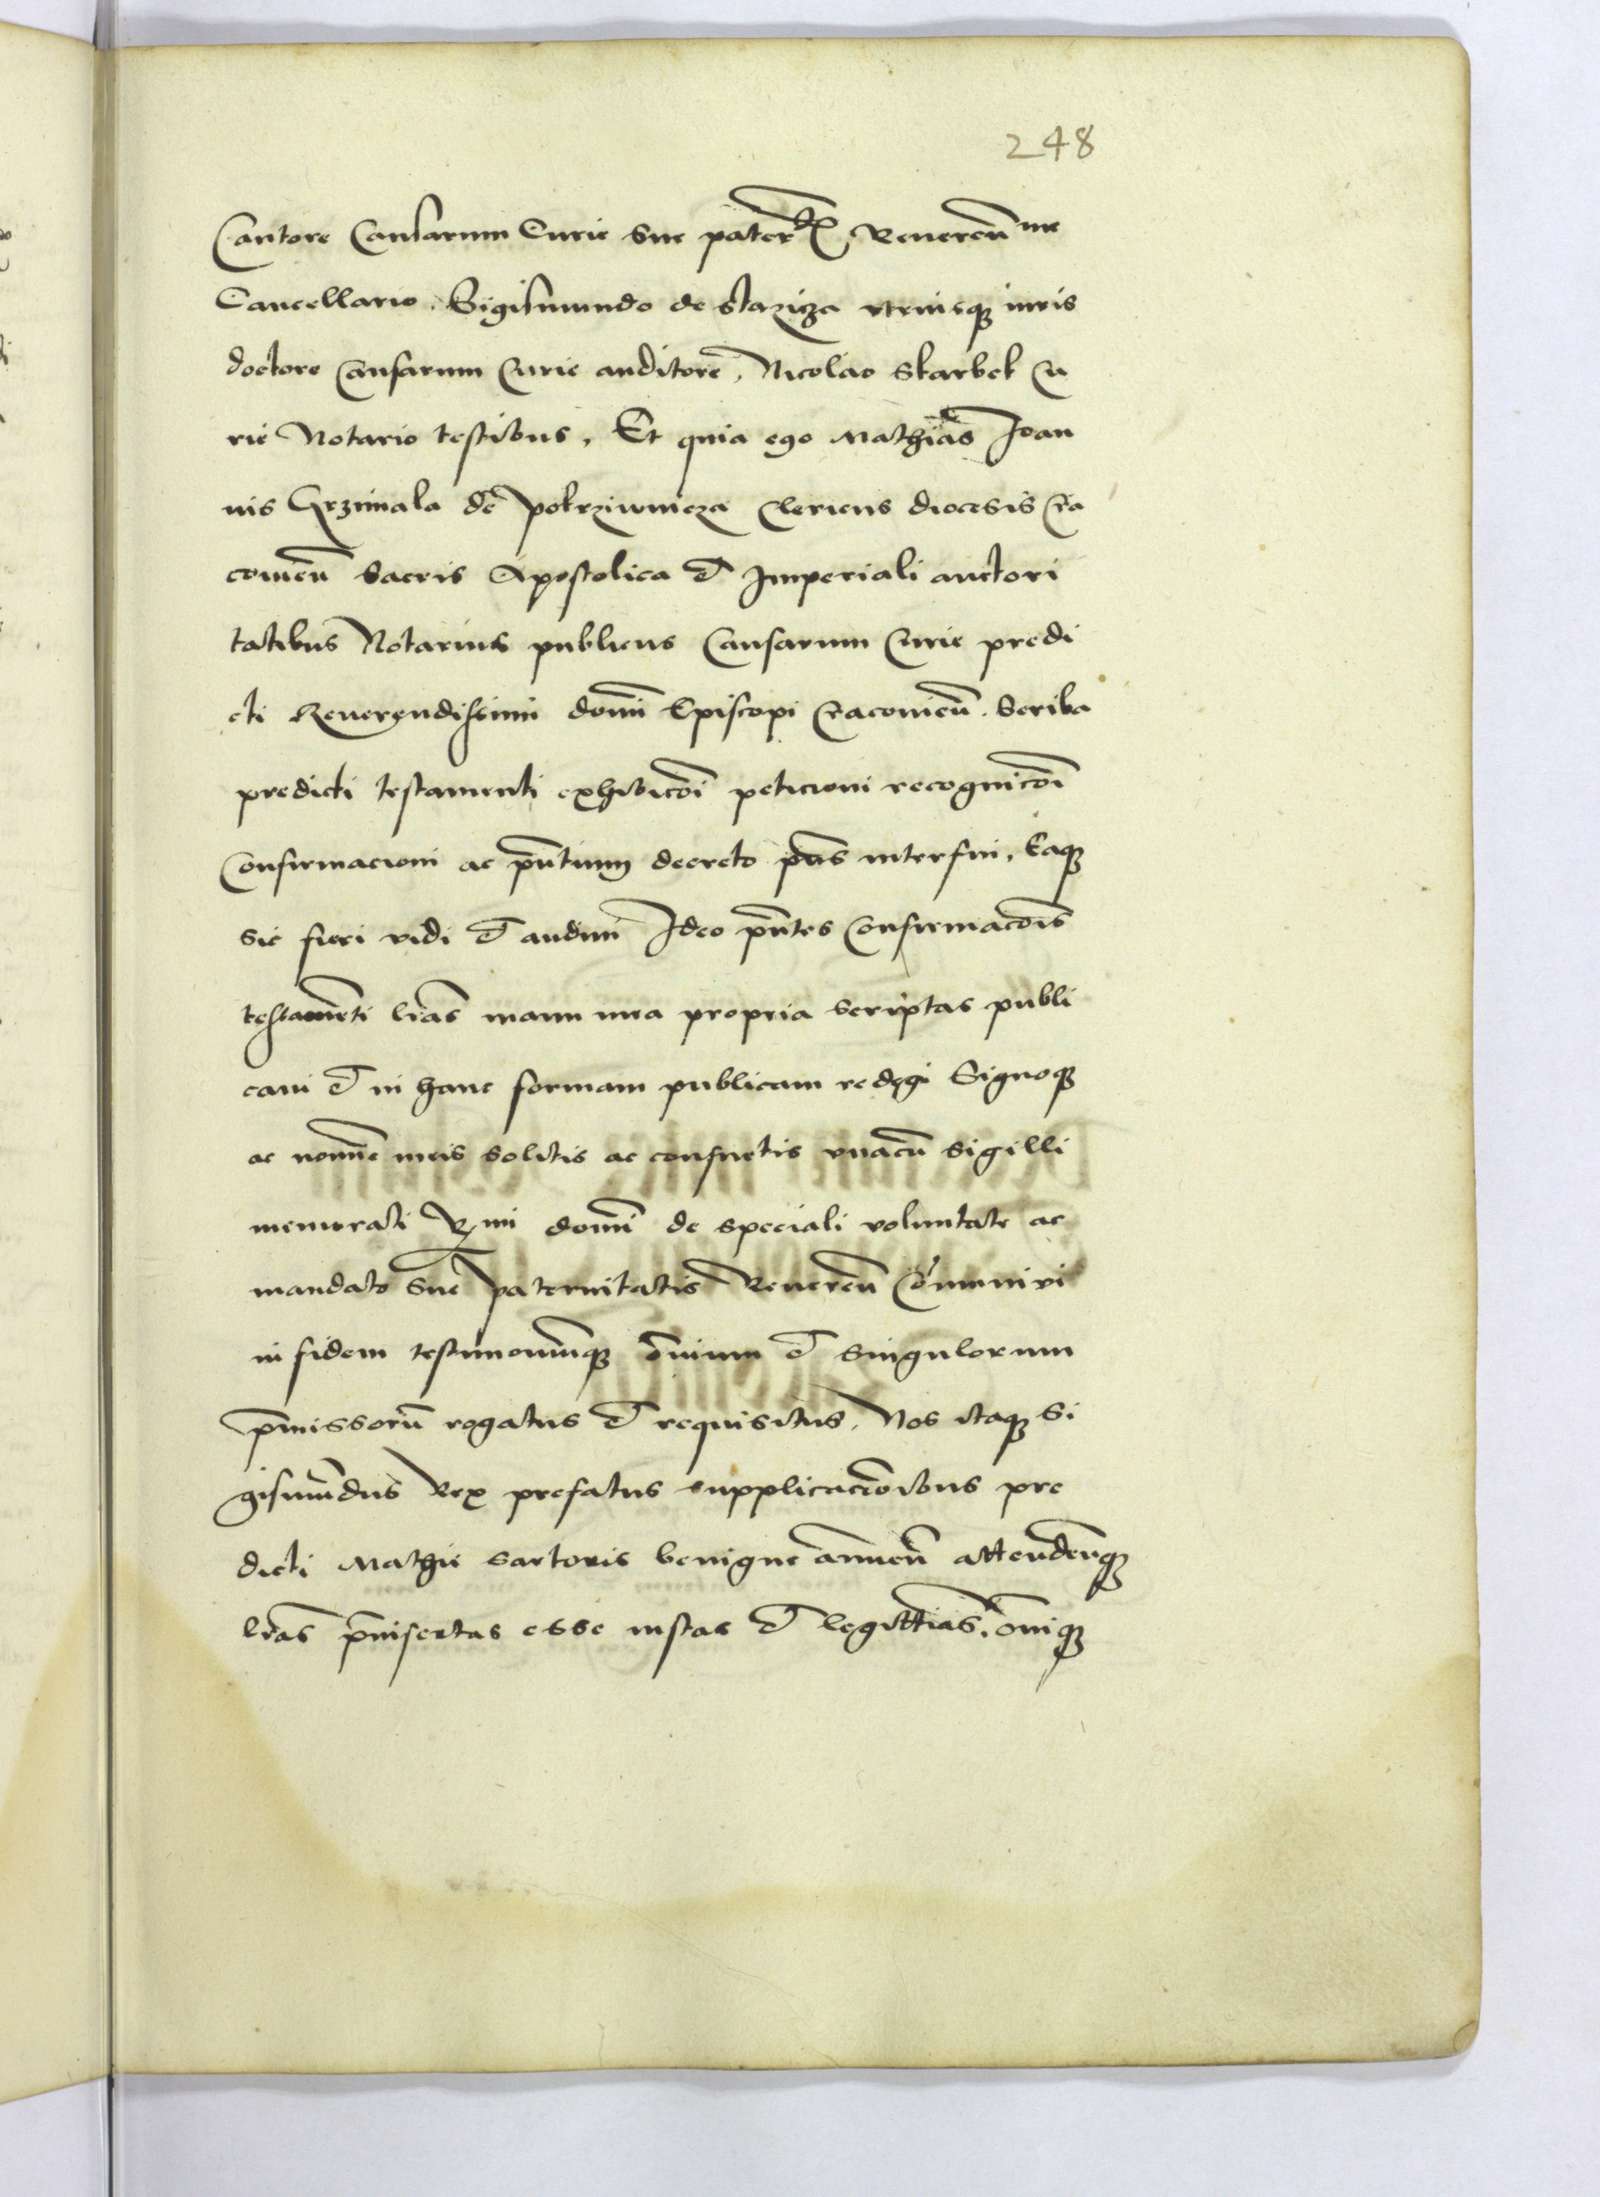 248
Cantore Causarum Curie Sue pater͠ Reuereñ me
Cancellario. Sigismundo de staziza vtriusqꝫ iuris
doctore Causarum Curie auditore, Nicolao Skarbek Cu
rie Notario testibus, Et quia ego Mathias Ioan
nis Grzimala de pokrziwnicza Clericus diocesis Cra
couieñ Sacris Apostolica et Imperiali auctori
tatibus Notarius publicus Causarum Curie predi
cti Reuerendissimi domi͠ Episcopi Cracouieñ. Scriba
predicti testamenti exhibico͠i peticioni recognico͠i
Confirmacioni ac pn͠tium decreto pn͠s interfui, Eaqꝫ
sic fieri vidi et audiui Ideo pn͠tes Confirmaco͠is
testame͠ti lr͠as manu mea propria scriptas publi
caui et in hanc formam publicam redegi Signoqꝫ
ac nomi͠e meis solitis ac consuetis vnacu͠ sigilli
memorati R͠mi domi͠ de speciali voluntate ac
mandato Sue paternitatis Reuereñ Co͠muniui
in fidem testimoniu͠qꝫ o͠nium et singulorum
p͠missoru͠ rogatus et requisitus. Nos itaqꝫ Si
gismu͠dus Rex prefatus supplicacio͠ibus pre
dicti Mathie sartoris benigne annueñ attendeñqꝫ
lr͠as p͠insertas esse iustas et legitti͠as, o͠niqꝫ